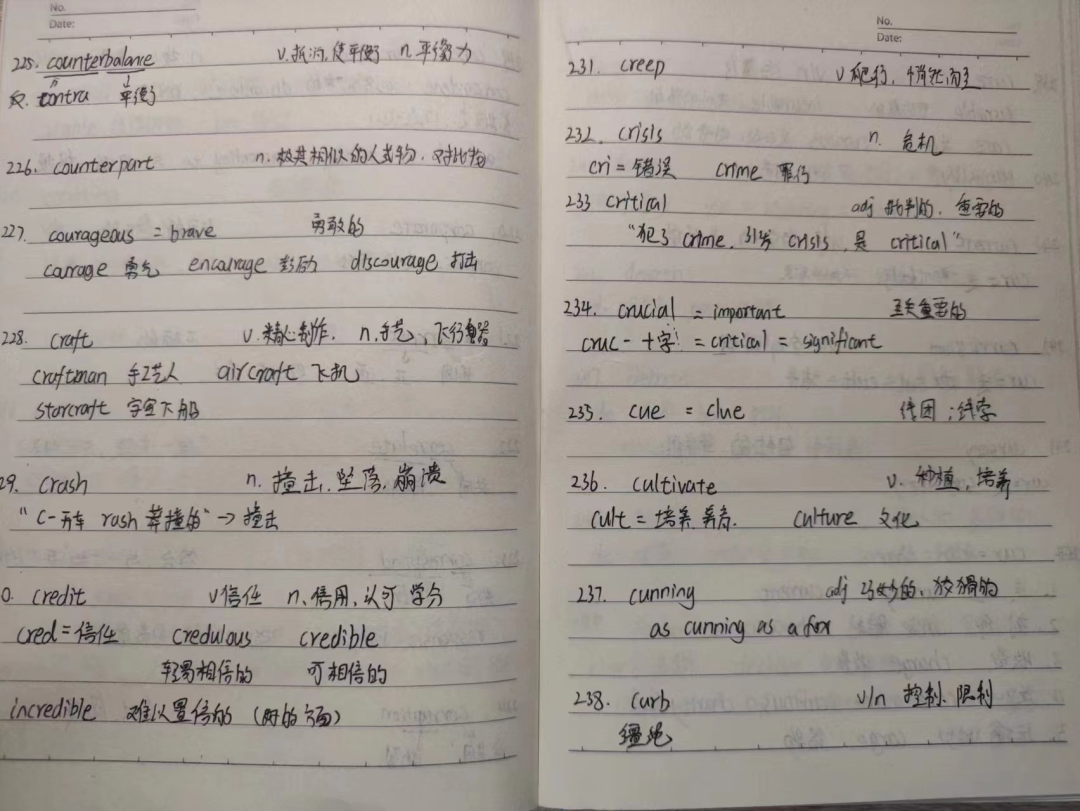 No.
Date:
225. counterbalane v.抵消,使平衡 n 平衡力
反. contra 平衡
226. counterpart n.极其相似的人或物,对比物
227. courageous = brave 勇敢的
courage 勇气 encourage 鼓励 discourage 打击
228. craft v.精心制作. n.手艺,飞行器
craftman 手工艺人 aircraft 飞机
starcraft 宇宙飞船
29. crash n.撞击.坠落.崩溃
"c-开车 rash 莽撞的"→撞击
0. credit v信任 n.信用,认可 学分
cred=信任 credulous credible
轻易相信的 可相信的
incredible 难以置信的 (好的方面)
No.
Date:
231. creep v爬行,悄然而至
232. crisis n. 危机
cri=错误 crime 罪行
233 critical adj 批判的.重要的
"犯了crime,引发crisis,是critical"
234. crucial = important 至关重要的
cruc-十字 = critical = significant
235. cue = clue 线团;线索
236. cultivate v.种植,培养
cult=培养.养育. culture 文化
237. cunning adj 巧妙的.狡猾的
as cunning as a fox
238. curb v/n 控制.限制
缰绳